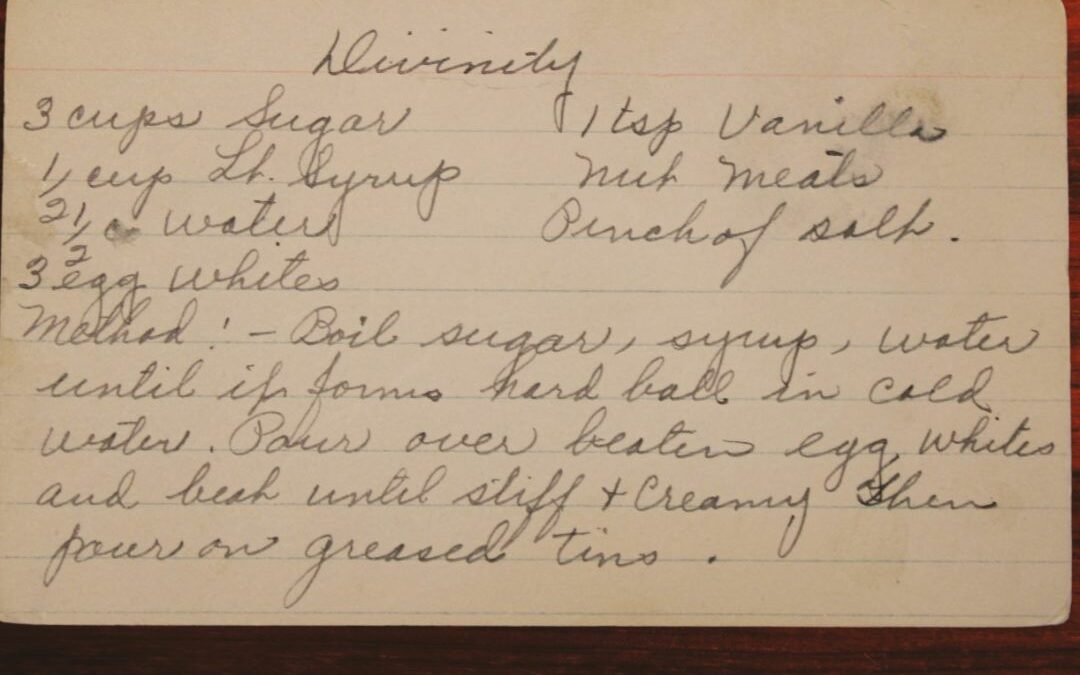 Divinity
3 cups Sugar 1 tsp Vanilla
1/2 cup Lt. Syrup Nut Meats
1/2 c water Pinch of salt.
3 egg whites
Method! - Boil sugar, syrup, water
until it forms hard ball in cold
water. Pour over beaten egg whites
and beat until stiff + creamy then
pour on greased tins.